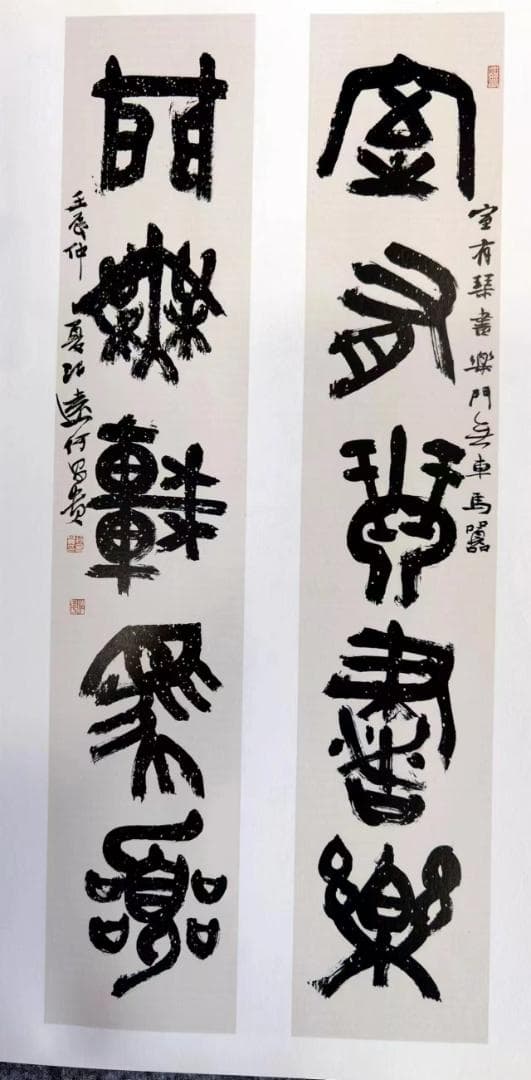 室有琴書樂門無車馬囂
室有琴書樂
門無車馬囂
壬辰仲夏何昌貴